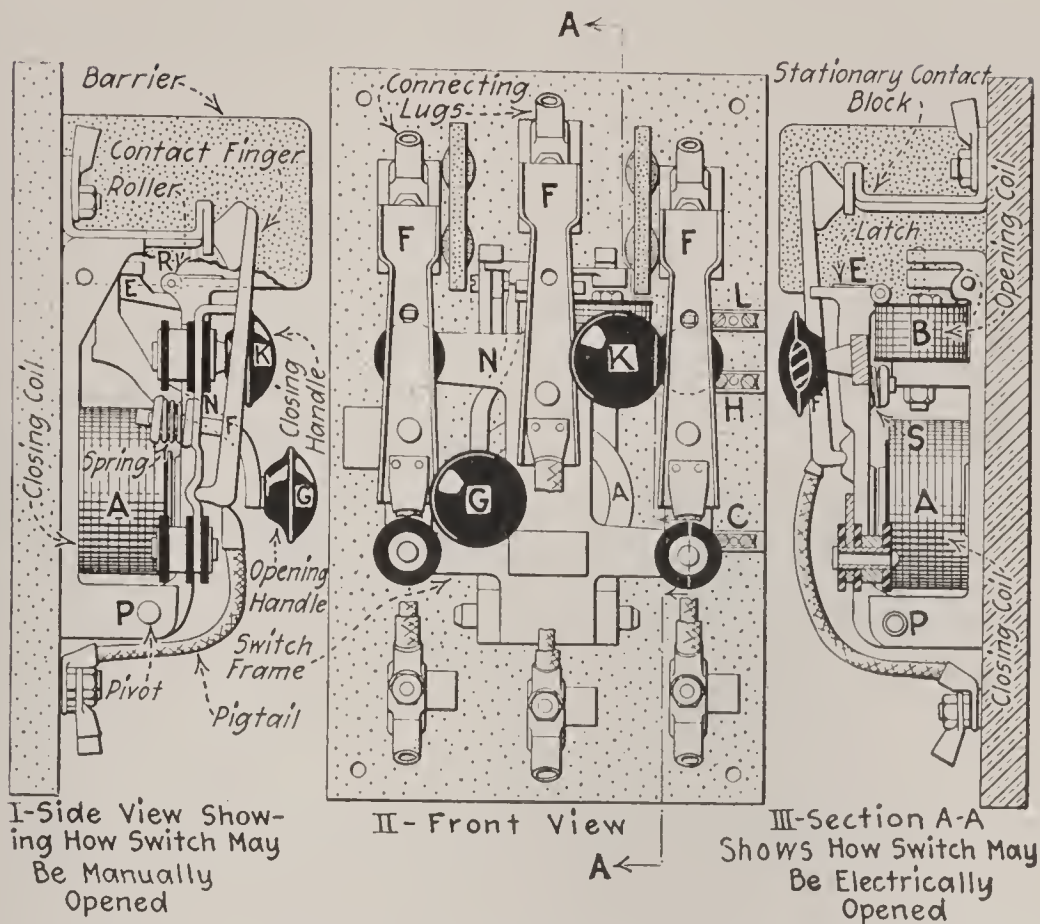 A
Barrier
Contact Finger
Roller
R
E
K
N
F
Spring
A
G
Closing Coil
Closing
Handle
Opening
Handle
P
Pivot
Pigtail
I-Side View Show-
ing How Switch May
Be Manually
Opened
Connecting
Lugs
F
F
F
L
N
K
H
A
G
C
Switch
Frame
II-Front View
A
Stationary Contact
Block
Latch
E
B
Opening Coil
F
S
A
P
Closing Coil
III-Section A-A
Shows How Switch May
Be Electrically
Opened